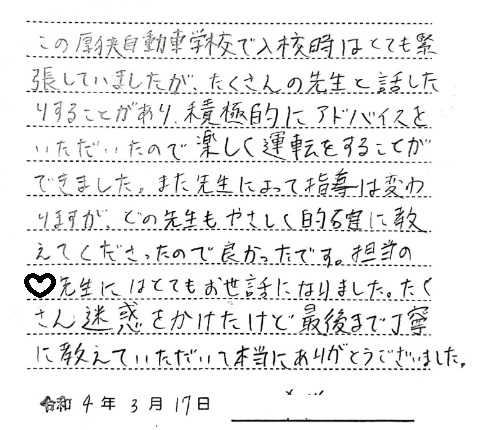 この厚狭自動車学校で入校時はとても緊
張していましたが、たくさんの先生と話した
りすることがあり、積極的にアドバイスを
いただいたので楽しく運転をすることが
できました。また先生によって指導は変わ
りますが、どの先生もやさしく的確に教
えてくださったので良かったです。担当の
♡先生にはとてもお世話になりました。たく
さん迷惑をかけたけど最後まで丁寧
に教えていただいて本当にありがとうございました。
令和 4 年 3 月 17 日